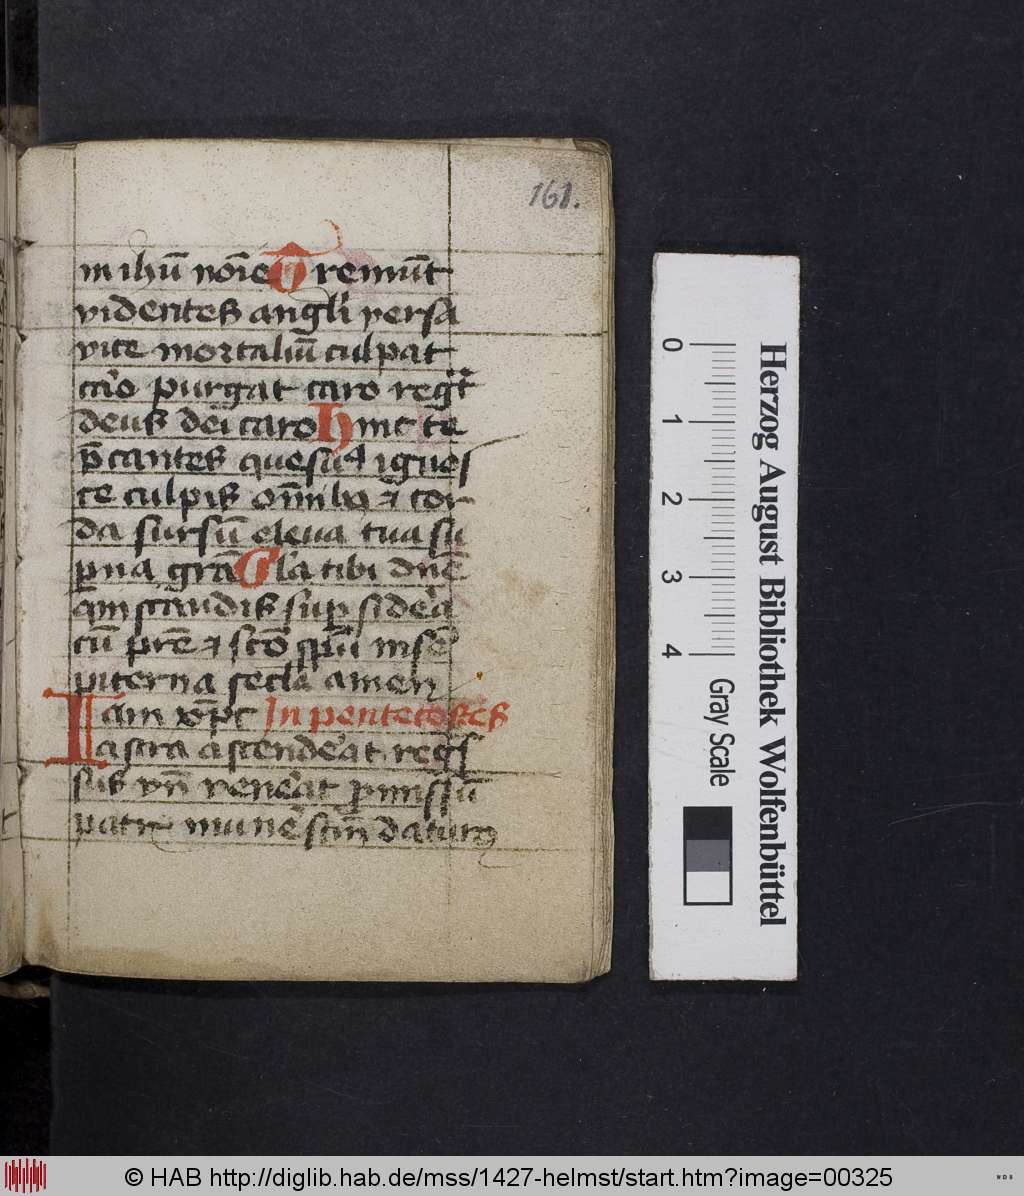 161.
in ihū noīe Tremūt
videntes angli versa
vice mortaliū culpat
caro purgat caro regt
deus dei caro Hinc te
p̄cantes quesumꝰ ignos
ce culpis om̄ibꝰ ⁊ cor
da sursū eleua tua su
perna grā Glā tibi dn̄e
qui scandis sup sidera
cū pr̄e ⁊ sc̄o spū in sē
piterna secla amen
Iam xp̄c In pentecostes
astra ascenderat regs
sus vn̄ venerat
patris munere daturꝰ
0 1 2 3 4
Gray Scale
Herzog August Bibliothek Wolfenbüttel
© HAB http://diglib.hab.de/mss/1427-helmst/start.htm?image=00325